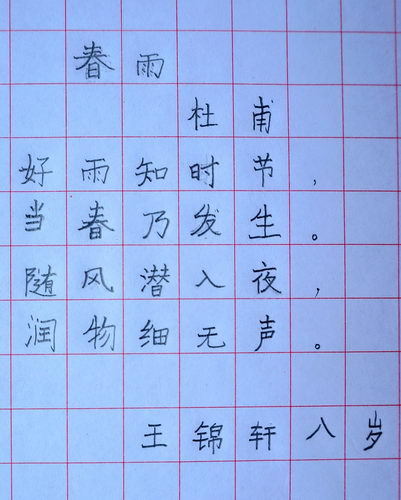 春雨
杜甫
好雨知时节，
当春乃发生。
随风潜入夜，
润物细无声。
王锦轩八岁